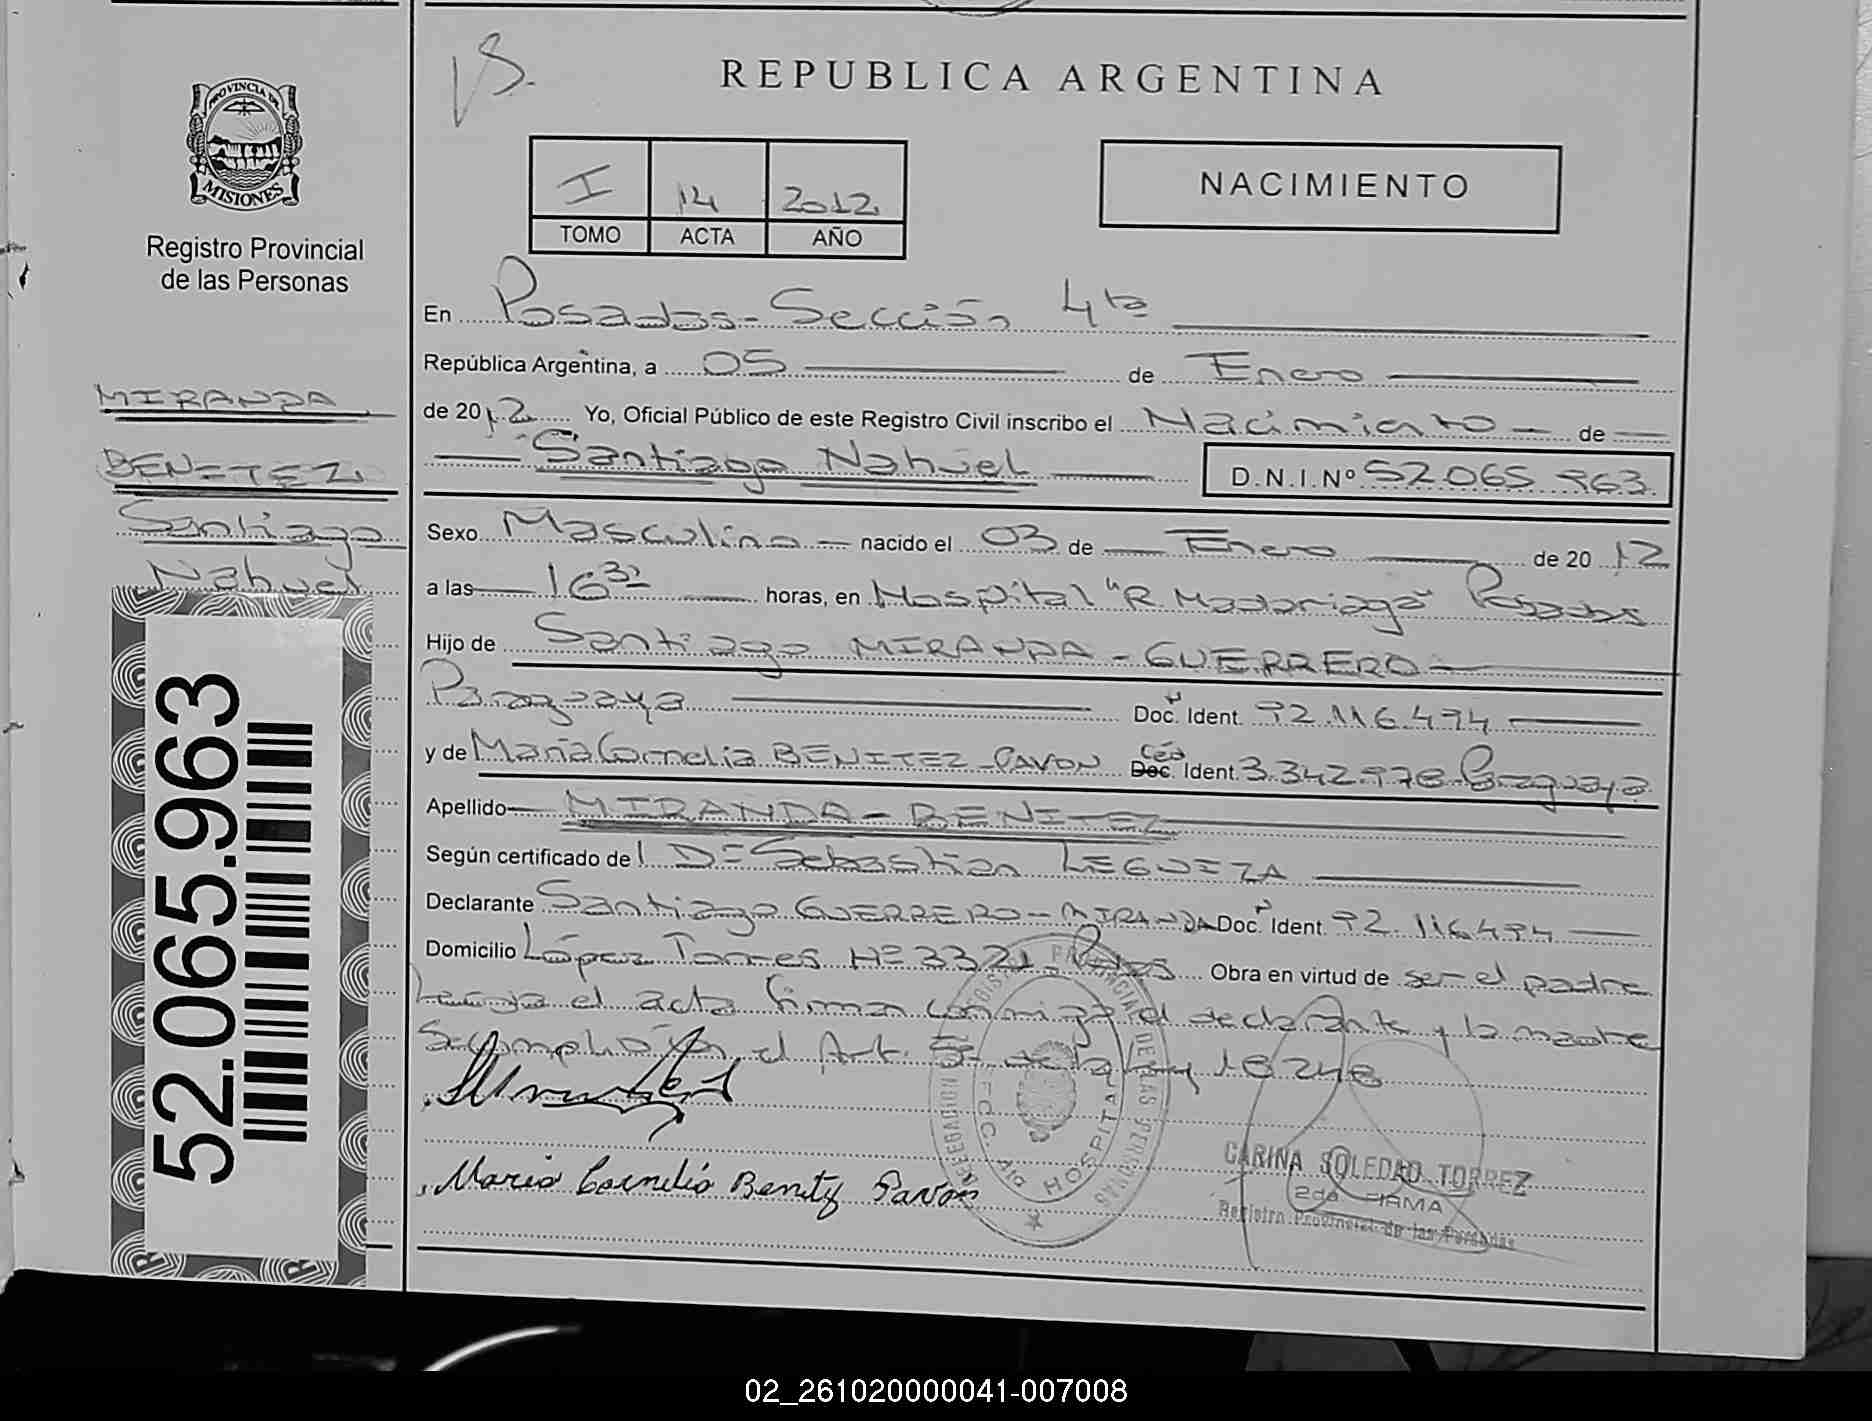 PROVINCIA DE
MISIONES
Registro Provincial
de las Personas
MIRANDA
BENITEZ
Santiago
Nahuel
52.065.963
REPUBLICA ARGENTINA
I 14 2012
TOMO ACTA AÑO
NACIMIENTO
En Posadas-Sección 4ta
República Argentina, a 05 de Enero
de 2012 Yo, Oficial Público de este Registro Civil inscribo el Nacimiento de
Santiago Nahuel D.N.I.Nº 52.065.963
Sexo Masculino nacido el 03 de Enero de 2012
a las 16 horas, en Hospital "R Madariaga" Posadas
Hijo de Santiago MIRANDA-GUERRERO
Paraguaya Doc. Ident. 92.116.494
y de Maria Cornelia BENITEZ-PAVON Céd Doc. Ident. 3.342.978 Paraguaya
Apellido MIRANDA-BENITEZ
Según certificado del D= Sebastian LEGUIZA
Declarante Santiago GUERRERO-MIRANDA Doc. Ident. 92.116.494
Domicilio López Torres Nº 3321 Pdas Obra en virtud de ser el padre
Leída el acta firman conmigo el declarante y la madre
Se cumplió con el Art. 5º de la Ley 18248
Maria Cornelia Benitez Pavon
HOSPITAL
CARINA SOLEDAD TORREZ
2da FIRMA
Registro Provincial de las Personas
02_261020000041-007008